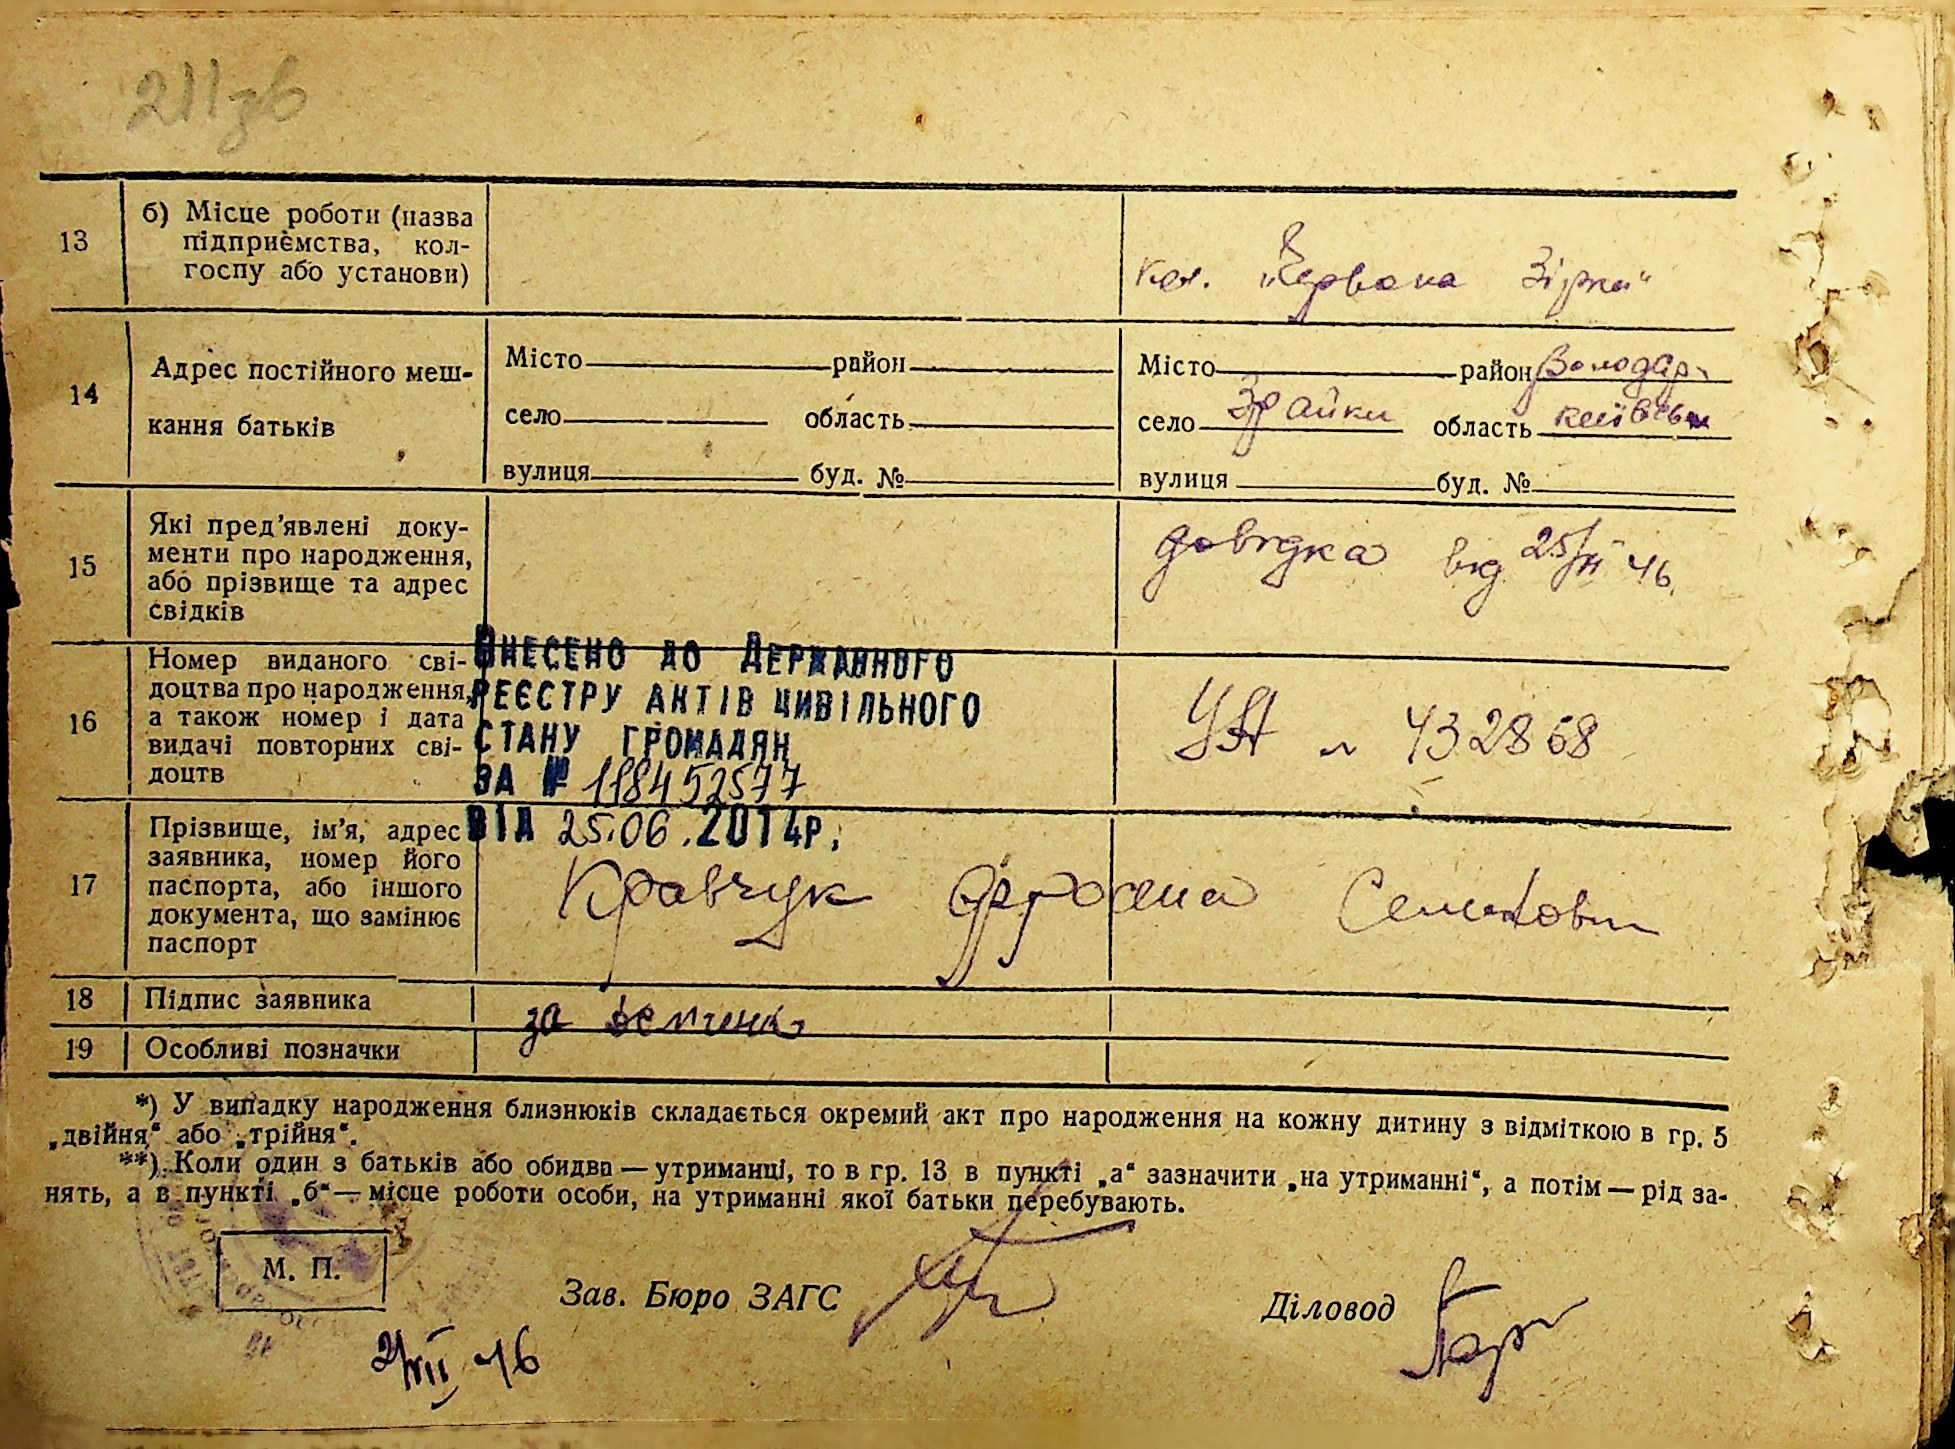 211зв
13
б) Місце роботи (назва
підприємства, кол-
госпу або установи)
кол. „Червона Зірка"
14
Адрес постійного меш-
кання батьків
Місто район
село область
вулиця буд. №
Місто район Володар-
село Зрайки область київськ
вулиця буд. №
15
Які пред'явлені доку-
менти про народження,
або прізвище та адрес
свідків
довідка від 25/ 46.
16
Номер виданого сві-
доцтва про народження,
а також номер і дата
видачі повторних сві-
доцтв
Внесено до Державного
реєстру актів цивільного
стану громадян
за № 118452577
від 25.06.2014р.
УЯ № 432868
17
Прізвище, ім'я, адрес
заявника, номер його
паспорта, або іншого
документа, що замінює
паспорт
Кравчук
18
Підпис заявника
за
19
Особливі позначки
*) У випадку народження близнюків складається окремий акт про народження на кожну дитину з відміткою в гр. 5
„двійня" або „трійня".
**) Коли один з батьків або обидва — утриманці, то в гр. 13 в пункті „а" зазначити „на утриманні", а потім — рід за-
нять, а в пункті „б" — місце роботи особи, на утриманні якої батьки перебувають.
М. П.
Зав. Бюро ЗАГС
Діловод